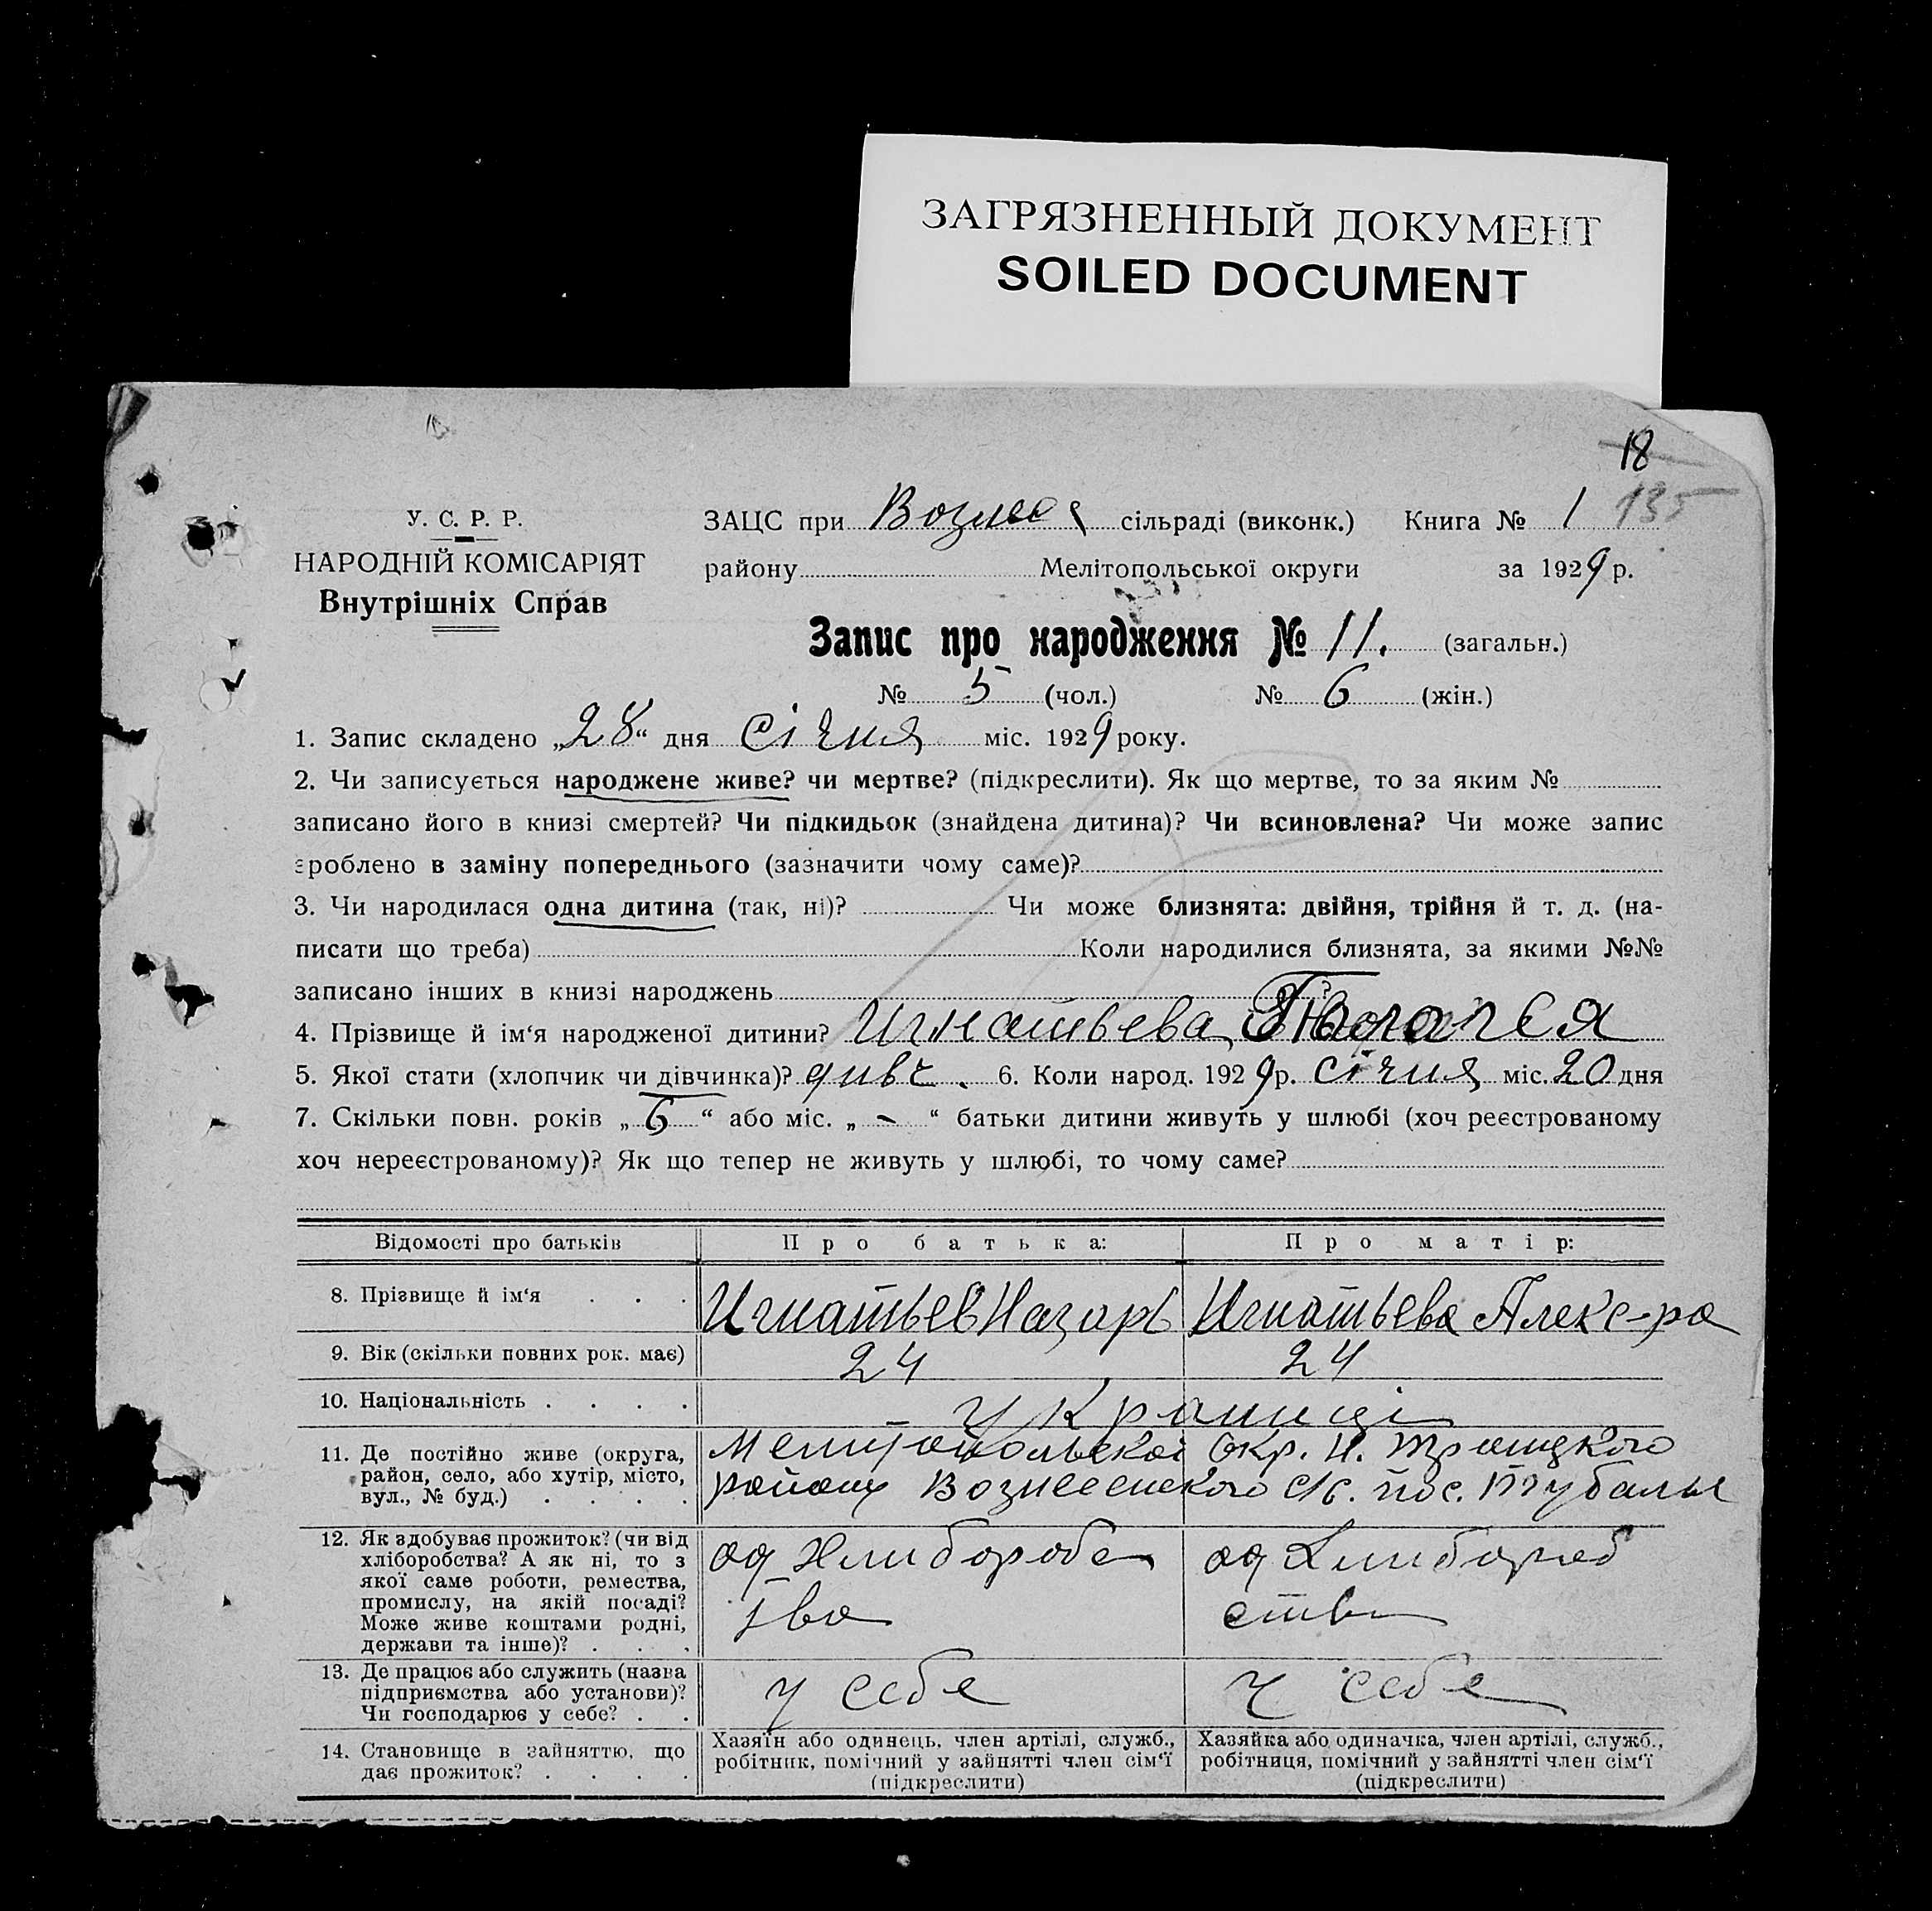 ЗАГРЯЗНЕННЫЙ ДОКУМЕНТ
SOILED DOCUMENT
18
135
У. С. Р. Р.
НАРОДНІЙ КОМІСАРІЯТ
Внутрішніх Справ
ЗАЦС при Вознес сільраді (виконк.) Книга № 1
району Мелітопольської округи за 1929 р.
Запис про народження № 11. (загальн.)
№ 5 (чол.) № 6 (жін.)
1. Запис складено „28“ дня січня міс. 1929 року.
2. Чи записується народжене живе? чи мертве? (підкреслити). Як що мертве, то за яким №
записано його в книзі смертей? Чи підкидьок (знайдена дитина)? Чи всиновлена? Чи може запис
зроблено в заміну попереднього (зазначити чому саме)?
3. Чи народилася одна дитина (так, ні)? Чи може близнята: двійня, трійня й т. д. (на-
писати що треба) Коли народилися близнята, за якими №№
записано інших в книзі народжень ?
4. Прізвище й ім‘я народженої дитини? Игнатьева
5. Якої стати (хлопчик чи дівчинка)? дивч. 6. Коли народ. 1929 р. січня міс. 20 дня
7. Скільки повн. років „6“ або міс. „-“ батьки дитини живуть у шлюбі (хоч реєстрованому
хоч нереєстрованому)? Як що тепер не живуть у шлюбі, то чому саме?
Відомості про батьків Про батька: Про матір:
8. Прізвище й ім‘я . . . Игнатьев Назарь Игнатьева Алекс-ра
9. Вік (скільки повних рок. має) 24 24
10. Національність . . . . - украинці
11. Де постійно живе (округа, Мелитопольскоі Окр. Н. Троицкого
район, село, або хутір, місто, району Вознесенского с/с. пос. Тубалы
вул., № буд.) . . . .
12. Як здобуває прожиток? (чи від
хліборобства? А як ні, то з од Хлиборобс од Хлибороб
якої саме роботи, ремества,
промислу, на якій посаді? тва ства
Може живе коштами родні,
держави та інше)? . . .
13. Де працює або служить (назва
підприємства або установи)? у себе у себе
Чи господарює у себе? . .
14. Становище в зайняттю, що
дає прожиток? . . . .
Хазяїн або одинець, член артілі, служб.,
робітник, помічний у зайнятті член сім‘ї
(підкреслити)
Хазяйка або одиначка, член артілі, служб.,
робітниця, помічний у зайнятті член сім‘ї
(підкреслити)